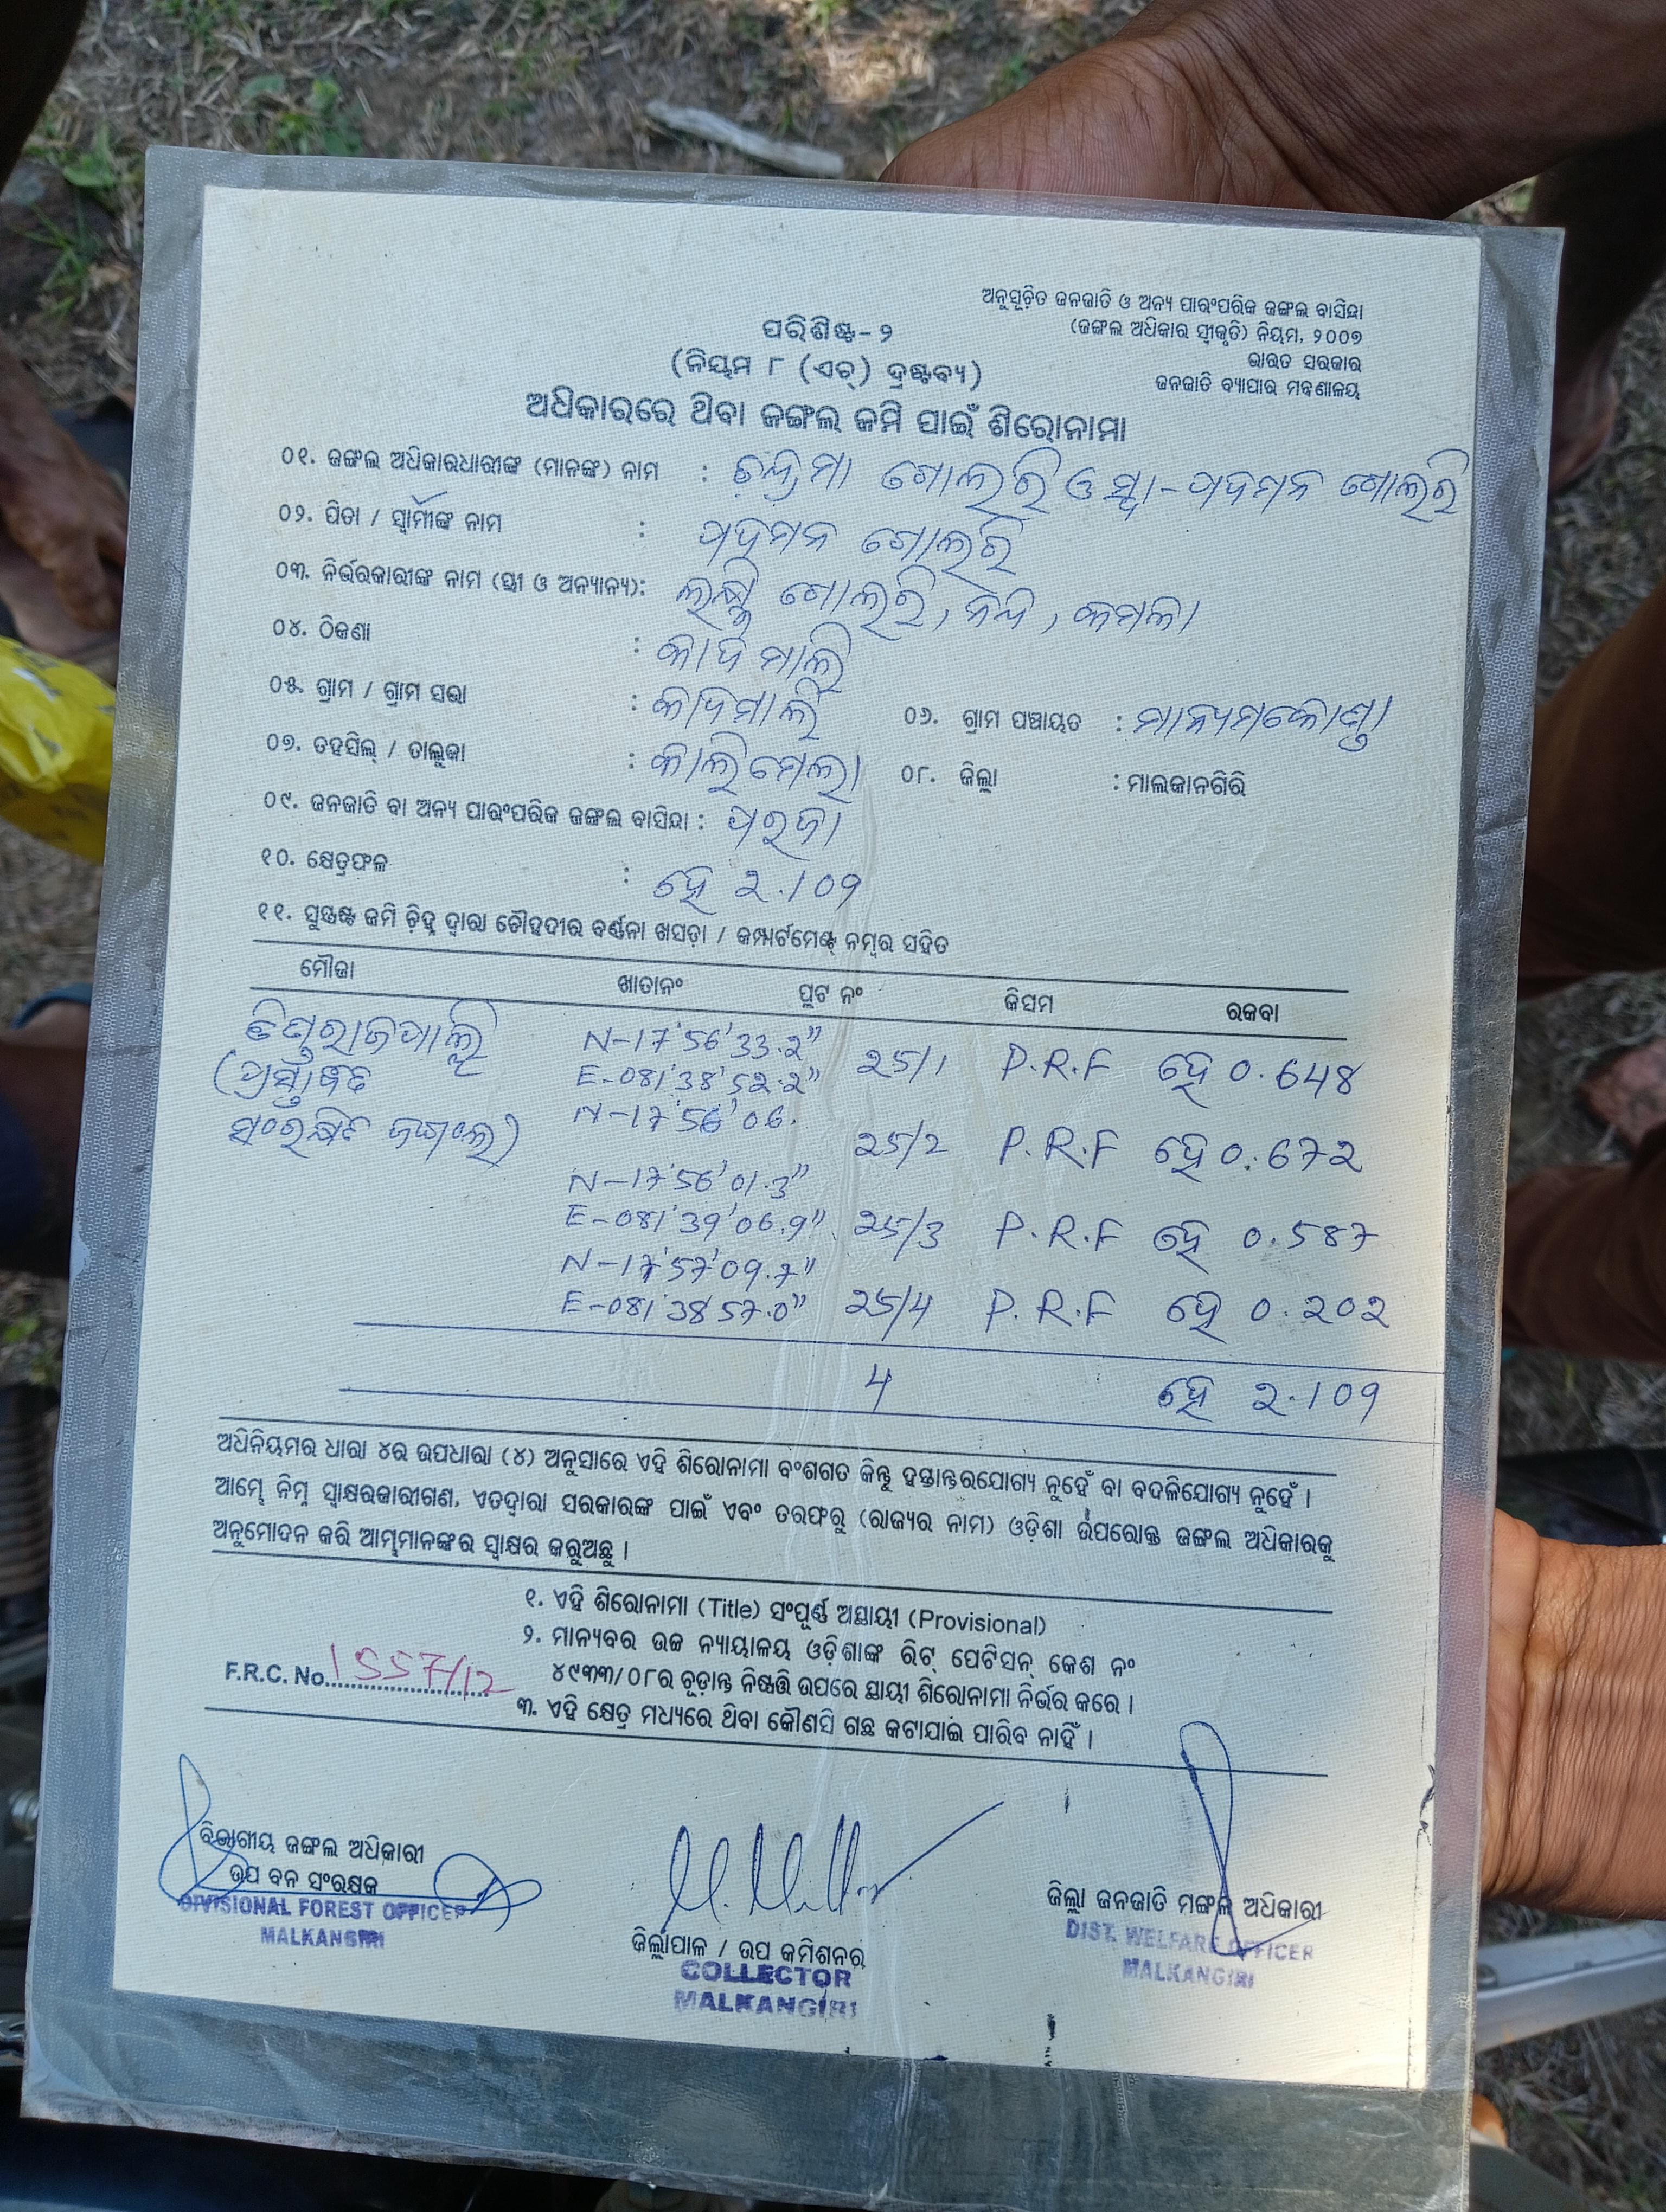 ଅନୁସୂଚିତ ଜନଜାତି ଓ ଅନ୍ୟ ପାରଂପରିକ ଜଙ୍ଗଲ ବାସିନ୍ଦା
(ଜଙ୍ଗଲ ଅଧିକାର ସ୍ୱୀକୃତି) ନିୟମ, ୨୦୦୭
ଭାରତ ସରକାର
ଜନଜାତି ବ୍ୟାପାର ମନ୍ତ୍ରଣାଳୟ
ପରିଶିଷ୍ଟ-୨
(ନିୟମ ୮ (ଏଚ୍) ଦ୍ରଷ୍ଟବ୍ୟ)
ଅଧିକାରରେ ଥିବା ଜଙ୍ଗଲ ଜମି ପାଇଁ ଶିରୋନାମା
୦୧. ଜଙ୍ଗଲ ଅଧିକାରଧାରୀଙ୍କ (ମାନଙ୍କ) ନାମ : ଚନ୍ଦ୍ରମା ଗୋଲରି ଓ ସ୍ୱା-ପଦମନ ଗୋଲରି
୦୨. ପିତା / ସ୍ୱାମୀଙ୍କ ନାମ : ପଦମନ ଗୋଲରି
୦୩. ନିର୍ଭରକାରୀଙ୍କ ନାମ (ସ୍ତ୍ରୀ ଓ ଅନ୍ୟାନ୍ୟ): ଗୋଲରି, କମଳା
୦୪. ଠିକଣା : କାଦମାଲି
୦୫. ଗ୍ରାମ / ଗ୍ରାମ ସଭା : କାଦମାଲି ୦୬. ଗ୍ରାମ ପଞ୍ଚାୟତ : ମାନ୍ୟମକୋଣ୍ଡା
୦୭. ତହସିଲ୍ / ତାଲୁକା : କାଲିମେଲା ୦୮. ଜିଲ୍ଲା : ମାଲକାନଗିରି
୦୯. ଜନଜାତି ବା ଅନ୍ୟ ପାରଂପରିକ ଜଙ୍ଗଲ ବାସିନ୍ଦା : ପରଜା
୧୦. କ୍ଷେତ୍ରଫଳ : ହେ 2.109
୧୧. ସୁସ୍ପଷ୍ଟ ଜମି ଚିହ୍ନ ଦ୍ୱାରା ଚୌହଦୀର ବର୍ଣ୍ଣନା ଖସଡ଼ା / କମ୍ପାର୍ଟମେଣ୍ଟ୍ ନମ୍ବର ସହିତ
ମୌଜା ଖାତାନଂ ପ୍ଲଟ ନଂ କିସମ ରକବା
N-17'56'33.2"
E-081'38'52.2" 25/1 P.R.F ହେ 0.648
(ପ୍ରସ୍ତାବିତ N-17'56'06.
ସଂରକ୍ଷିତ ଜଙ୍ଗଲ) 25/2 P.R.F ହେ 0.672
N-17'56'01.3"
E-081'39'06.9" 25/3 P.R.F ହେ 0.587
N-17'57'09.7"
E-081'38'57.0" 25/4 P.R.F ହେ 0.202
4 ହେ 2.109
ଅଧିନିୟମର ଧାରା ୪ର ଉପଧାରା (୪) ଅନୁସାରେ ଏହି ଶିରୋନାମା ବଂଶଗତ କିନ୍ତୁ ହସ୍ତାନ୍ତରଯୋଗ୍ୟ ନୁହେଁ ବା ବଦଳିଯୋଗ୍ୟ ନୁହେଁ ।
ଆମ୍ଭେ ନିମ୍ନ ସ୍ୱାକ୍ଷରକାରୀଗଣ, ଏତଦ୍ୱାରା ସରକାରଙ୍କ ପାଇଁ ଏବଂ ତରଫରୁ (ରାଜ୍ୟର ନାମ) ଓଡ଼ିଶା ଉପରୋକ୍ତ ଜଙ୍ଗଲ ଅଧିକାରକୁ
ଅନୁମୋଦନ କରି ଆମ୍ଭମାନଙ୍କର ସ୍ୱାକ୍ଷର କରୁଅଛୁ ।
୧. ଏହି ଶିରୋନାମା (Title) ସଂପୂର୍ଣ୍ଣ ଅସ୍ଥାୟୀ (Provisional)
୨. ମାନ୍ୟବର ଉଚ୍ଚ ନ୍ୟାୟାଳୟ ଓଡ଼ିଶାଙ୍କ ରିଟ୍ ପେଟିସନ୍ କେଶ ନଂ
୪୯୩୩/୦୮ର ଚୂଡ଼ାନ୍ତ ନିଷ୍ପତ୍ତି ଉପରେ ସ୍ଥାୟୀ ଶିରୋନାମା ନିର୍ଭର କରେ ।
F.R.C. No. 1557/12
୩. ଏହି କ୍ଷେତ୍ର ମଧ୍ୟରେ ଥିବା କୌଣସି ଗଛ କଟାଯାଇ ପାରିବ ନାହିଁ ।
ବିଭାଗୀୟ ଜଙ୍ଗଲ ଅଧିକାରୀ
ଉପ ବନ ସଂରକ୍ଷକ
DIVISIONAL FOREST OFFICER
MALKANGIRI
ଜିଲ୍ଲାପାଳ / ଉପ କମିଶନର୍
COLLECTOR
MALKANGIRI
ଜିଲ୍ଲା ଜନଜାତି ମଙ୍ଗଳ ଅଧିକାରୀ
DIST. WELFARE OFFICER
MALKANGIRI